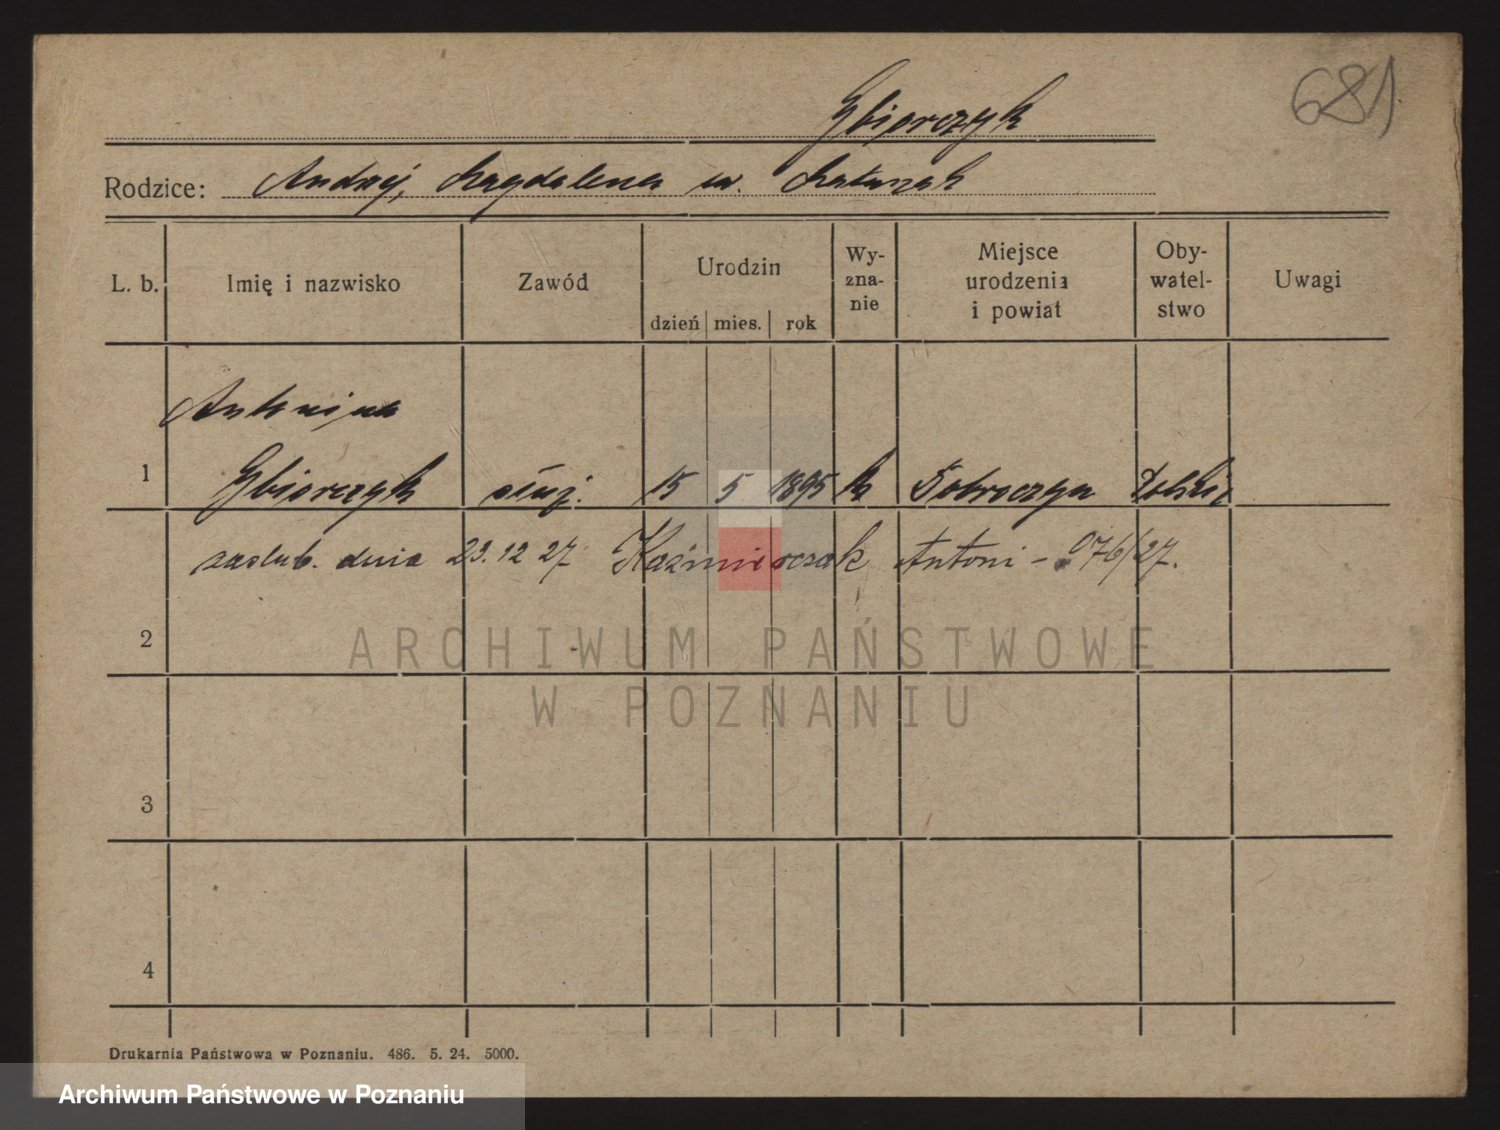 681
Gbiorczyk
Rodzice: Andrzej, Magdalena ur. Matuszak
L. b. Imię i nazwisko Zawód Urodzin dzień mies. rok Wy-zna-nie Miejsce urodzenia i powiat Oby-watel-stwo Uwagi
Antonina
1 Gbiorczyk służ. 15 5 1895 k Dobroczyn Polskie
zaślub. dnia 23. 12 27 Kaźmierczak Antoni - 976/27.
2
ARCHIWUM PAŃSTWOWE
W POZNANIU
3
4
Drukarnia Państwowa w Poznaniu. 486. 5. 24. 5000.
Archiwum Państwowe w Poznaniu